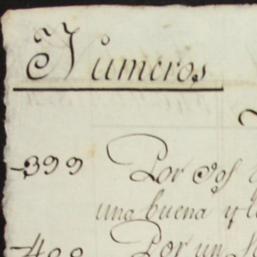 Numeros
399 Por dos
una buena y
400 Por un